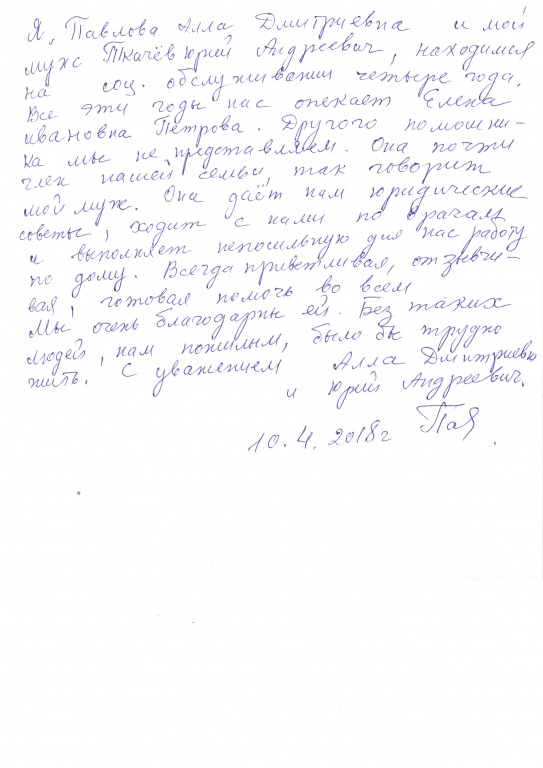 Я, Павлова Алла Дмитриевна и мой
муж Ткачёв Юрий Андреевич, находимся
на соц. обслуживании четыре года.
Все эти годы нас опекает Елена
ивановна Петрова. Другого помошни-
ка мы не представляем. Она почти
член нашей семьи, так говорит
мой муж. Она даёт нам юридические
советы, ходит с нами по врачам,
и выполняет непосильную для нас работу
по дому. Всегда приветливая, отзывчи-
вая, готовая помочь во всем
Мы очень благодарны ей. Без таких
людей, нам пожилым, было бы трудно
жить. С уважением Алла Дмитриевна
и Юрий Андреевич.
10.4.2018г